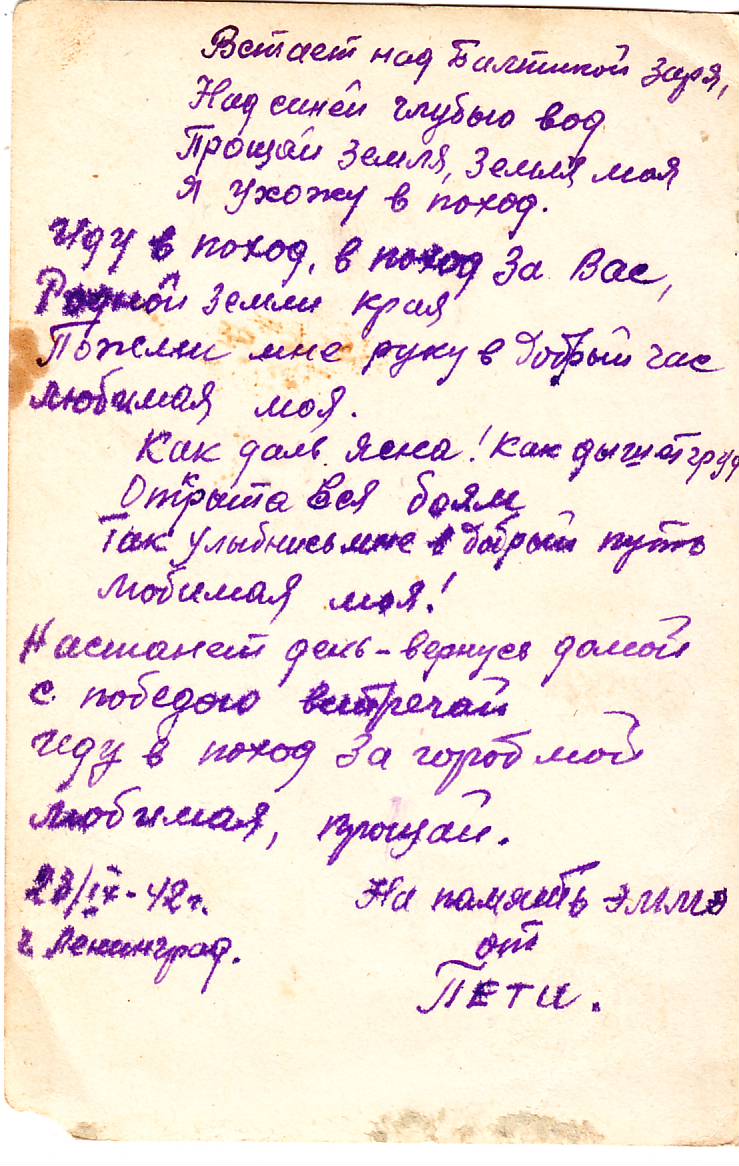 Встает над Балтикой заря,
Над синей глубью вод
Прощай земля, земля моя
Я ухожу в поход.
Иду в поход, в поход за Вас,
Родной земли края
Пожми мне руку в добрый час
любимая моя.
Как даль ясна! как дышит груд
Открыта вся боям
Так улыбнись мне в добрый путь
любимая моя!
Настанет день - вернусь домой
с победою встречай
Иду в поход за город мой
любимая, прощай.
23/IX-42г. На память Эмме
г. Ленинград. от
Пети.